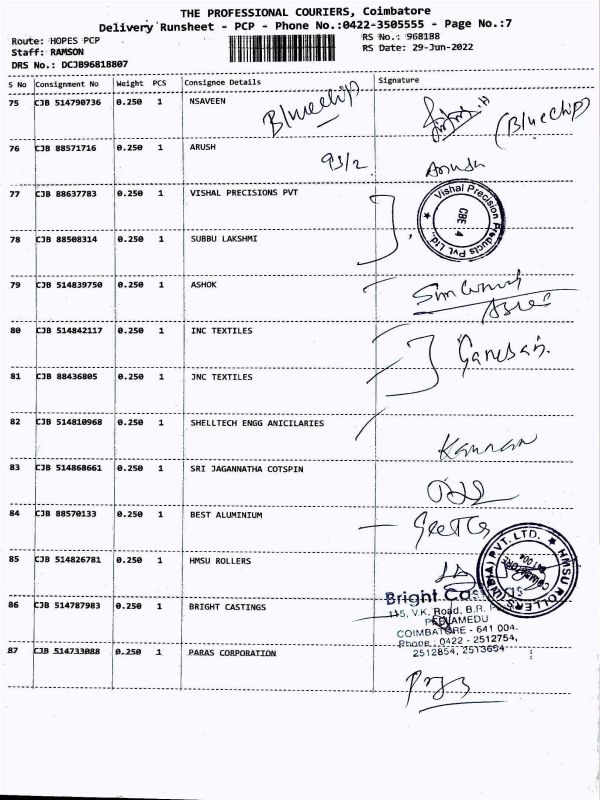 THE PROFESSIONAL COURIERS, Coimbatore
Delivery Runsheet - PCP - Phone No.:0422-3505555 - Page No.:7
Route: HOPES PCP RS No.: 968188
Staff: RAMSON RS Date: 29-Jun-2022
DRS No.: DCJB96818807
S No Consignment No Weight PCS Consignee Details Signature
75 CJB 514790736 0.250 1 NSAVEEN Bluechip (Bluechip)
76 CJB 88571716 0.250 1 ARUSH 93/2
77 CJB 88637783 0.250 1 VISHAL PRECISIONS PVT
Vishal Precision Products Pvt. Ltd.,
CBE 4
78 CJB 88508314 0.250 1 SUBBU LAKSHMI
79 CJB 514839750 0.250 1 ASHOK
80 CJB 514842117 0.250 1 INC TEXTILES Ganesan.
81 CJB 88436805 0.250 1 JNC TEXTILES
82 CJB 514810968 0.250 1 SHELLTECH ENGG ANICILARIES
Kannan
83 CJB 514868661 0.250 1 SRI JAGANNATHA COTSPIN
84 CJB 88570133 0.250 1 BEST ALUMINIUM
85 CJB 514826781 0.250 1 HMSU ROLLERS
HMSU ROLLERS PVT. LTD.
COIMBATORE
641 004
86 CJB 514787983 0.250 1 BRIGHT CASTINGS
Bright
115, V.K. Road, B.R.
PEELAMEDU
COIMBATORE - 641 004.
Phone : 0422 - 2512754,
2512854, 2513654
87 CJB 514733088 0.250 1 PARAS CORPORATION